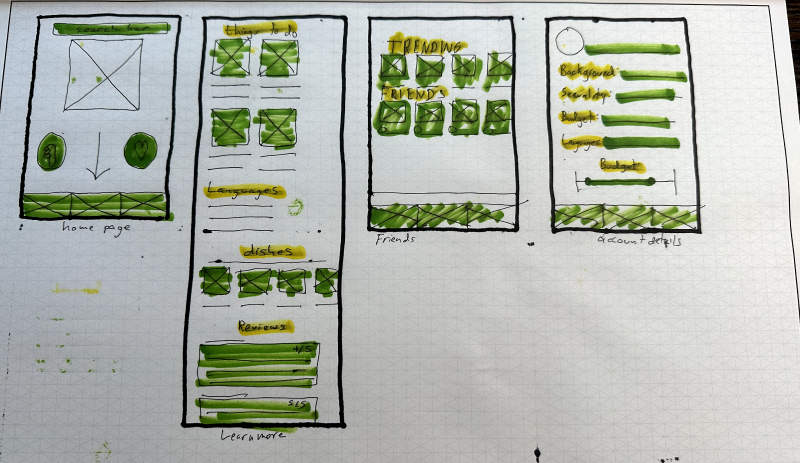 search bar
home page
things to do
Languages
dishes
Reviews
4/5
5/5
Learn more
TRENDING
FRIENDS
Friends
Background
Security
Budget
Languages
Budget
account details